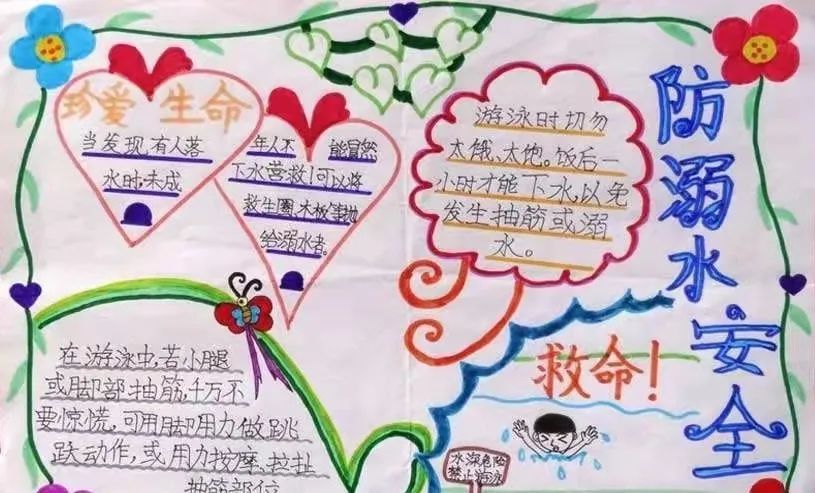 防溺水安全
珍爱 生命
当发现有人落
水时,未成
年人不 能冒然
下水营救!可以将
救生圈、木板等抛
给溺水者。
游泳时切勿
太饿、太饱。饭后一
小时才能下水,以免
发生抽筋或溺
水。
在游泳中,若小腿
或脚部抽筋,千万不
要惊慌,可用脚用力做跳
跃动作,或用力按摩、拉扯
抽筋部位
救命!
水深危险
禁止游泳